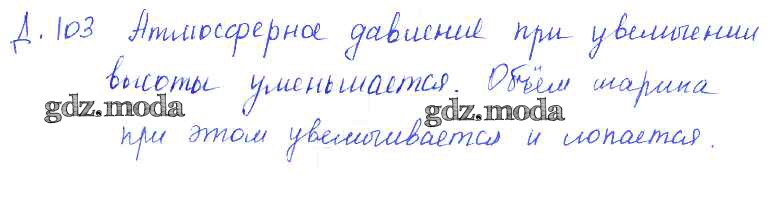 Д. 103 Атмосферное давление при увеличении
высоты уменьшается. Объём шарика
gdz.moda gdz.moda
при этом увеличивается и лопается.